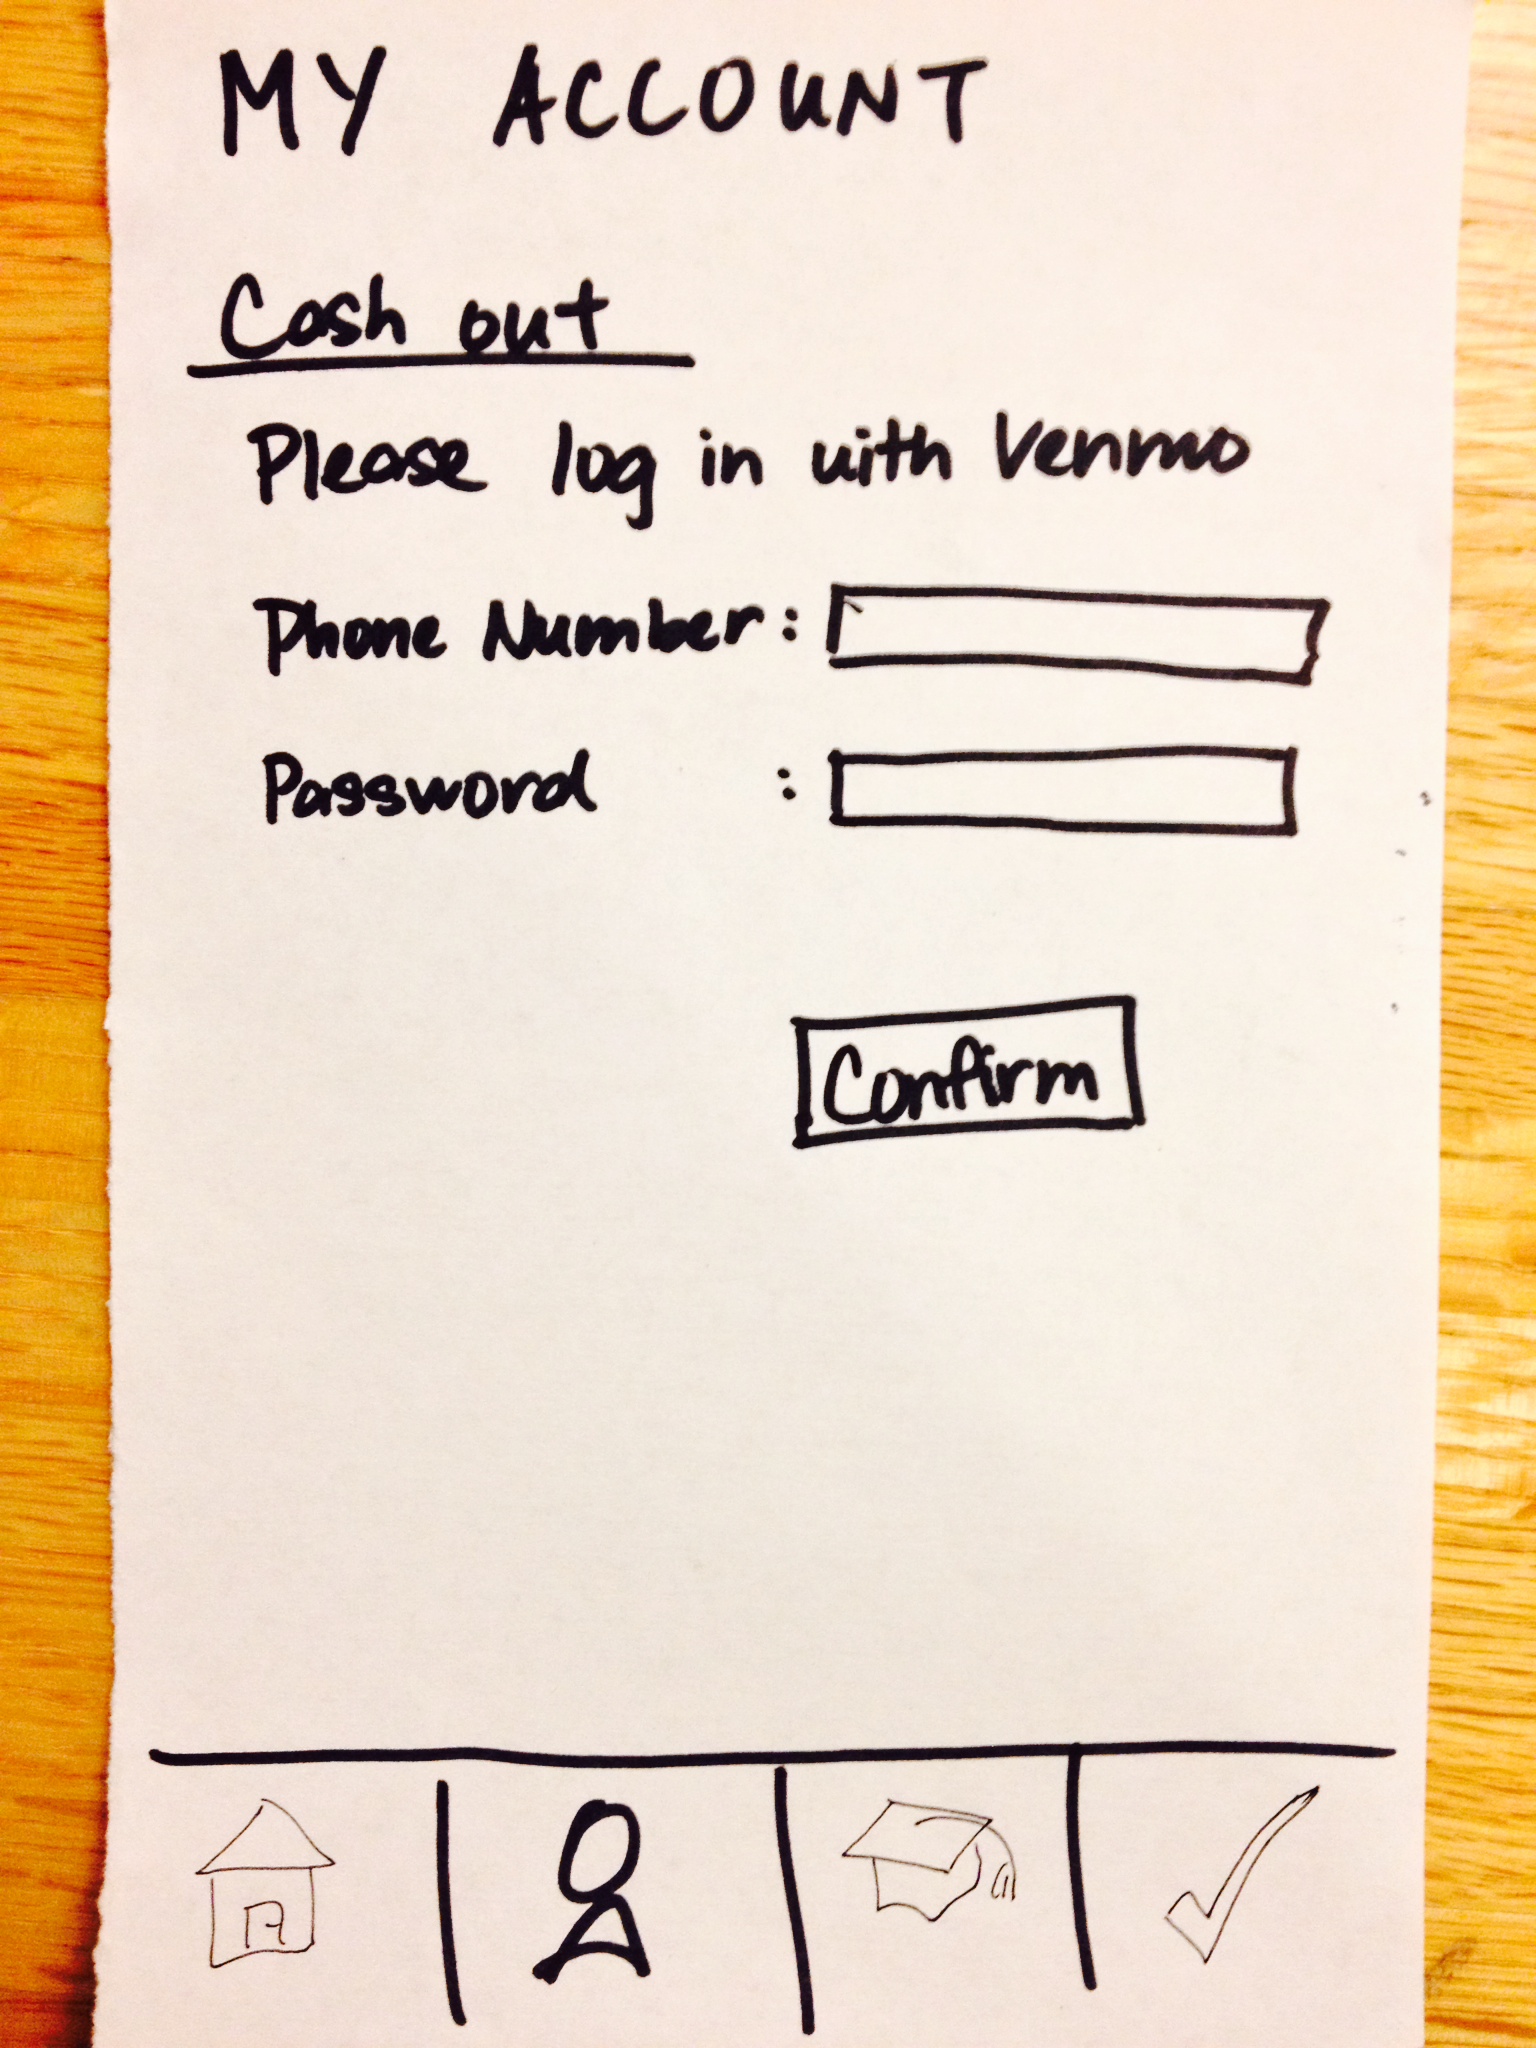 MY ACCOUNT
Cash out
Please log in with Venmo
Phone Number :
Password :
Confirm